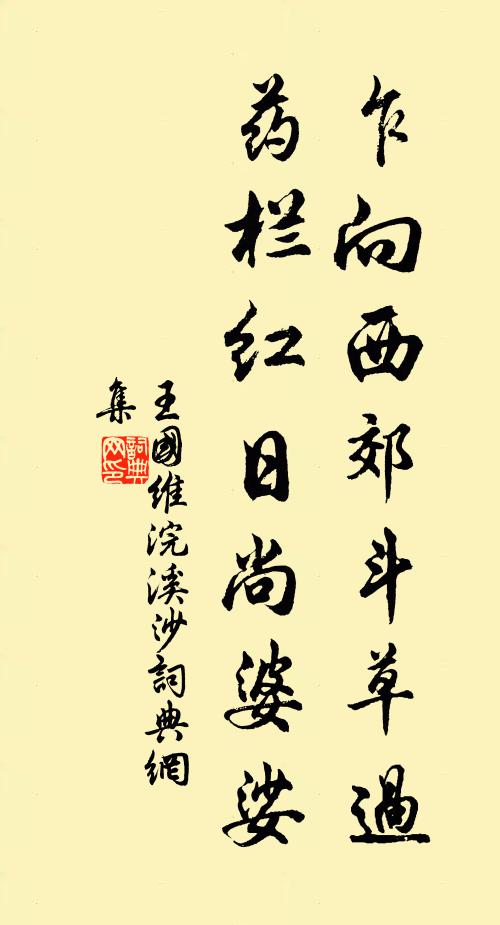 乍向西郊斗草過
药栏红日尚婆娑
王國維浣溪沙詞典網
集
詞典網印